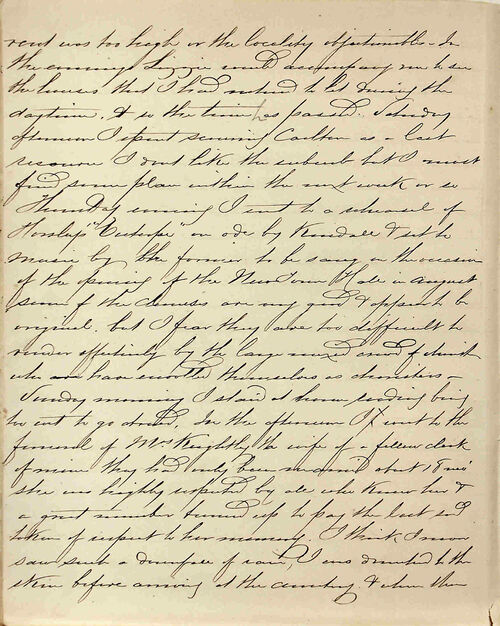 rent was too high or the locality objectionable - In
the evening Lizzie would accompany me to see
the houses that I had noticed to let during the
daytime, & so the time has passed. Saturday
afternoon I spent scouring Carlton as a last
resource I dont like the suburb but I must
find some place within the next week or so
Thursday evening I went to a rehearsal of
Horsley's "Euterpe" an ode by Kendall & set to
music by the former to be sung on the occasion
of the opening of the New Town Hall in August
some of the choruses are very good & appear to be
original, but I fear they are too difficult to
render effectively by the large mixed crowd of
who have enrolled themselves as choristers -
Sunday morning I staid at home reading being
too wet to go abroad. In the afternoon I went to the
funeral of Mrs Keightly, the wife of a fellow clerk
of mine they had only been married about 18 mos
she was highly respected by all who knew her &
a great number turned up to pay the last sad
token of respect to her memory. I think I never
saw such a downpour of rain, I was drenched to the
skin before arriving at the cemetery & when there